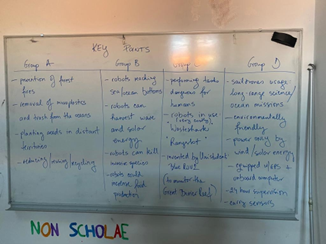 KEY POINTS
Group A
- prevention of forest
fires
- removal of microplastics
and trash from the oceans
- planting seeds in distant
territories
- reducing/reusing/recycling
Group B
- robots making
sea/ocean bottoms
- robots can
harvest wave
and solar
energy
- robots can kill
invasive species
- robots could
restore fish
Group C
- performing tasks
dangerous for
humans
- robots in use
"Rangerbot"
(to monitor the
Great Barrier Reef)
Group D
- saildrones usage:
long-range science/
ocean missions
- environmentally
friendly
- power only by
wind/solar energy
- equipped w/ GPS &
onboard computer
- 24 hour supervision
NON SCHOLAE